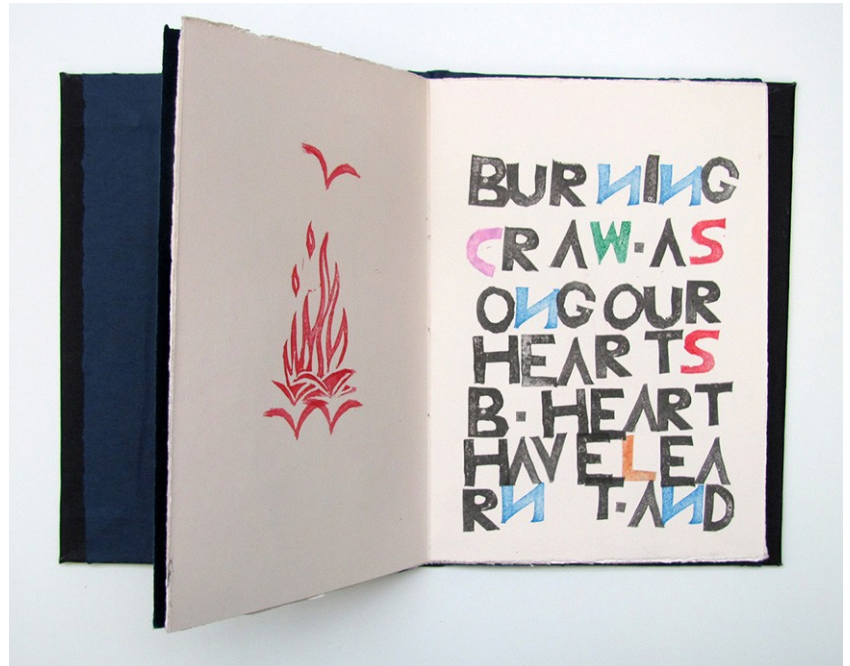 BURNING
CRAW·AS
ONGOUR
HEARTS
B·HEART
HAVELEA
RN T·AND